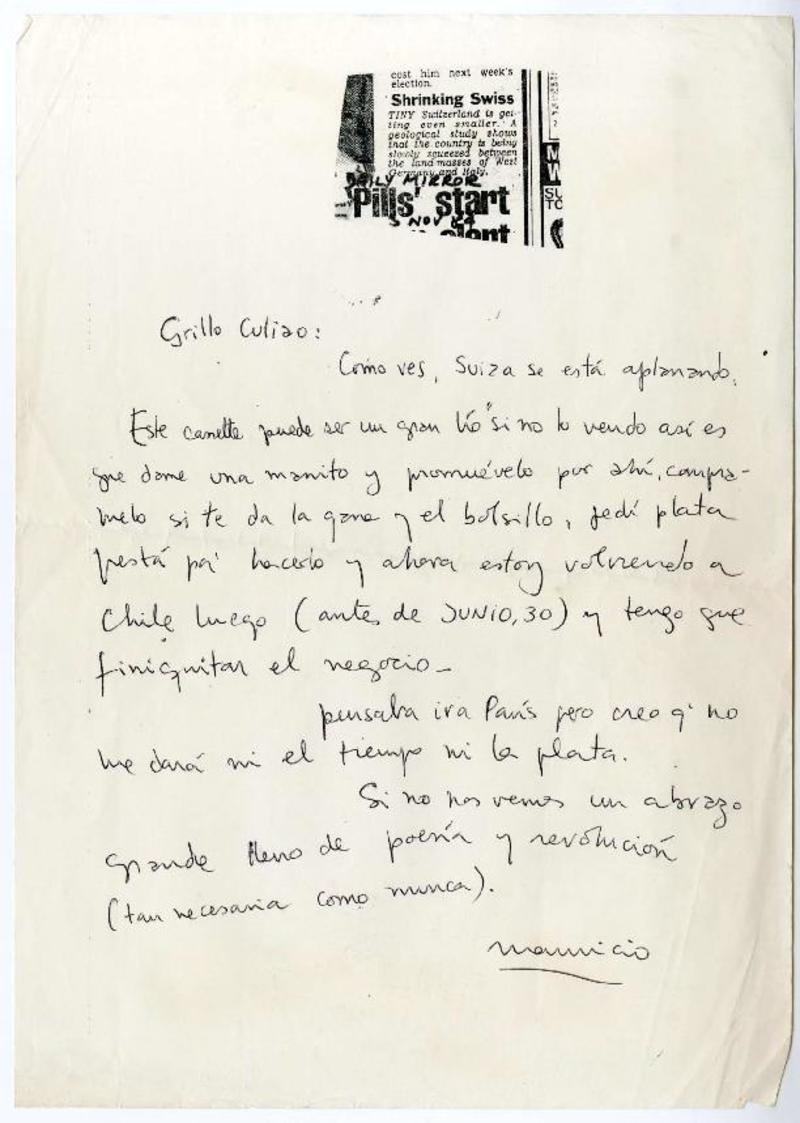 cost him next week's
election.
Shrinking Swiss
TINY Switzerland is get-
ting even smaller. A
geological study shows
that the country is being
slowly squeezed between
the land masses of West
Germany and Italy.
DAILY MIRROR
'Pills' start
5 NOV 84
M
W
SU
TC
Grillo Culiao:
Como ves, Suiza se está aplanando.
Este casette puede ser un gran lío si no lo vendo así es
que dame una manito y promuévelo por ahí, compra-
melo si te da la gana y el bolsillo, pedí plata
prestá pa' hacerlo y ahora estoy volviendo a
Chile luego (antes de JUNIO, 30) y tengo que
finiquitar el negocio –
pensaba ir a París pero creo q' no
me dará ni el tiempo ni la plata.
Si no nos vemos un abrazo
grande lleno de poesía y revolución
(tan necesaria como nunca).
mauricio